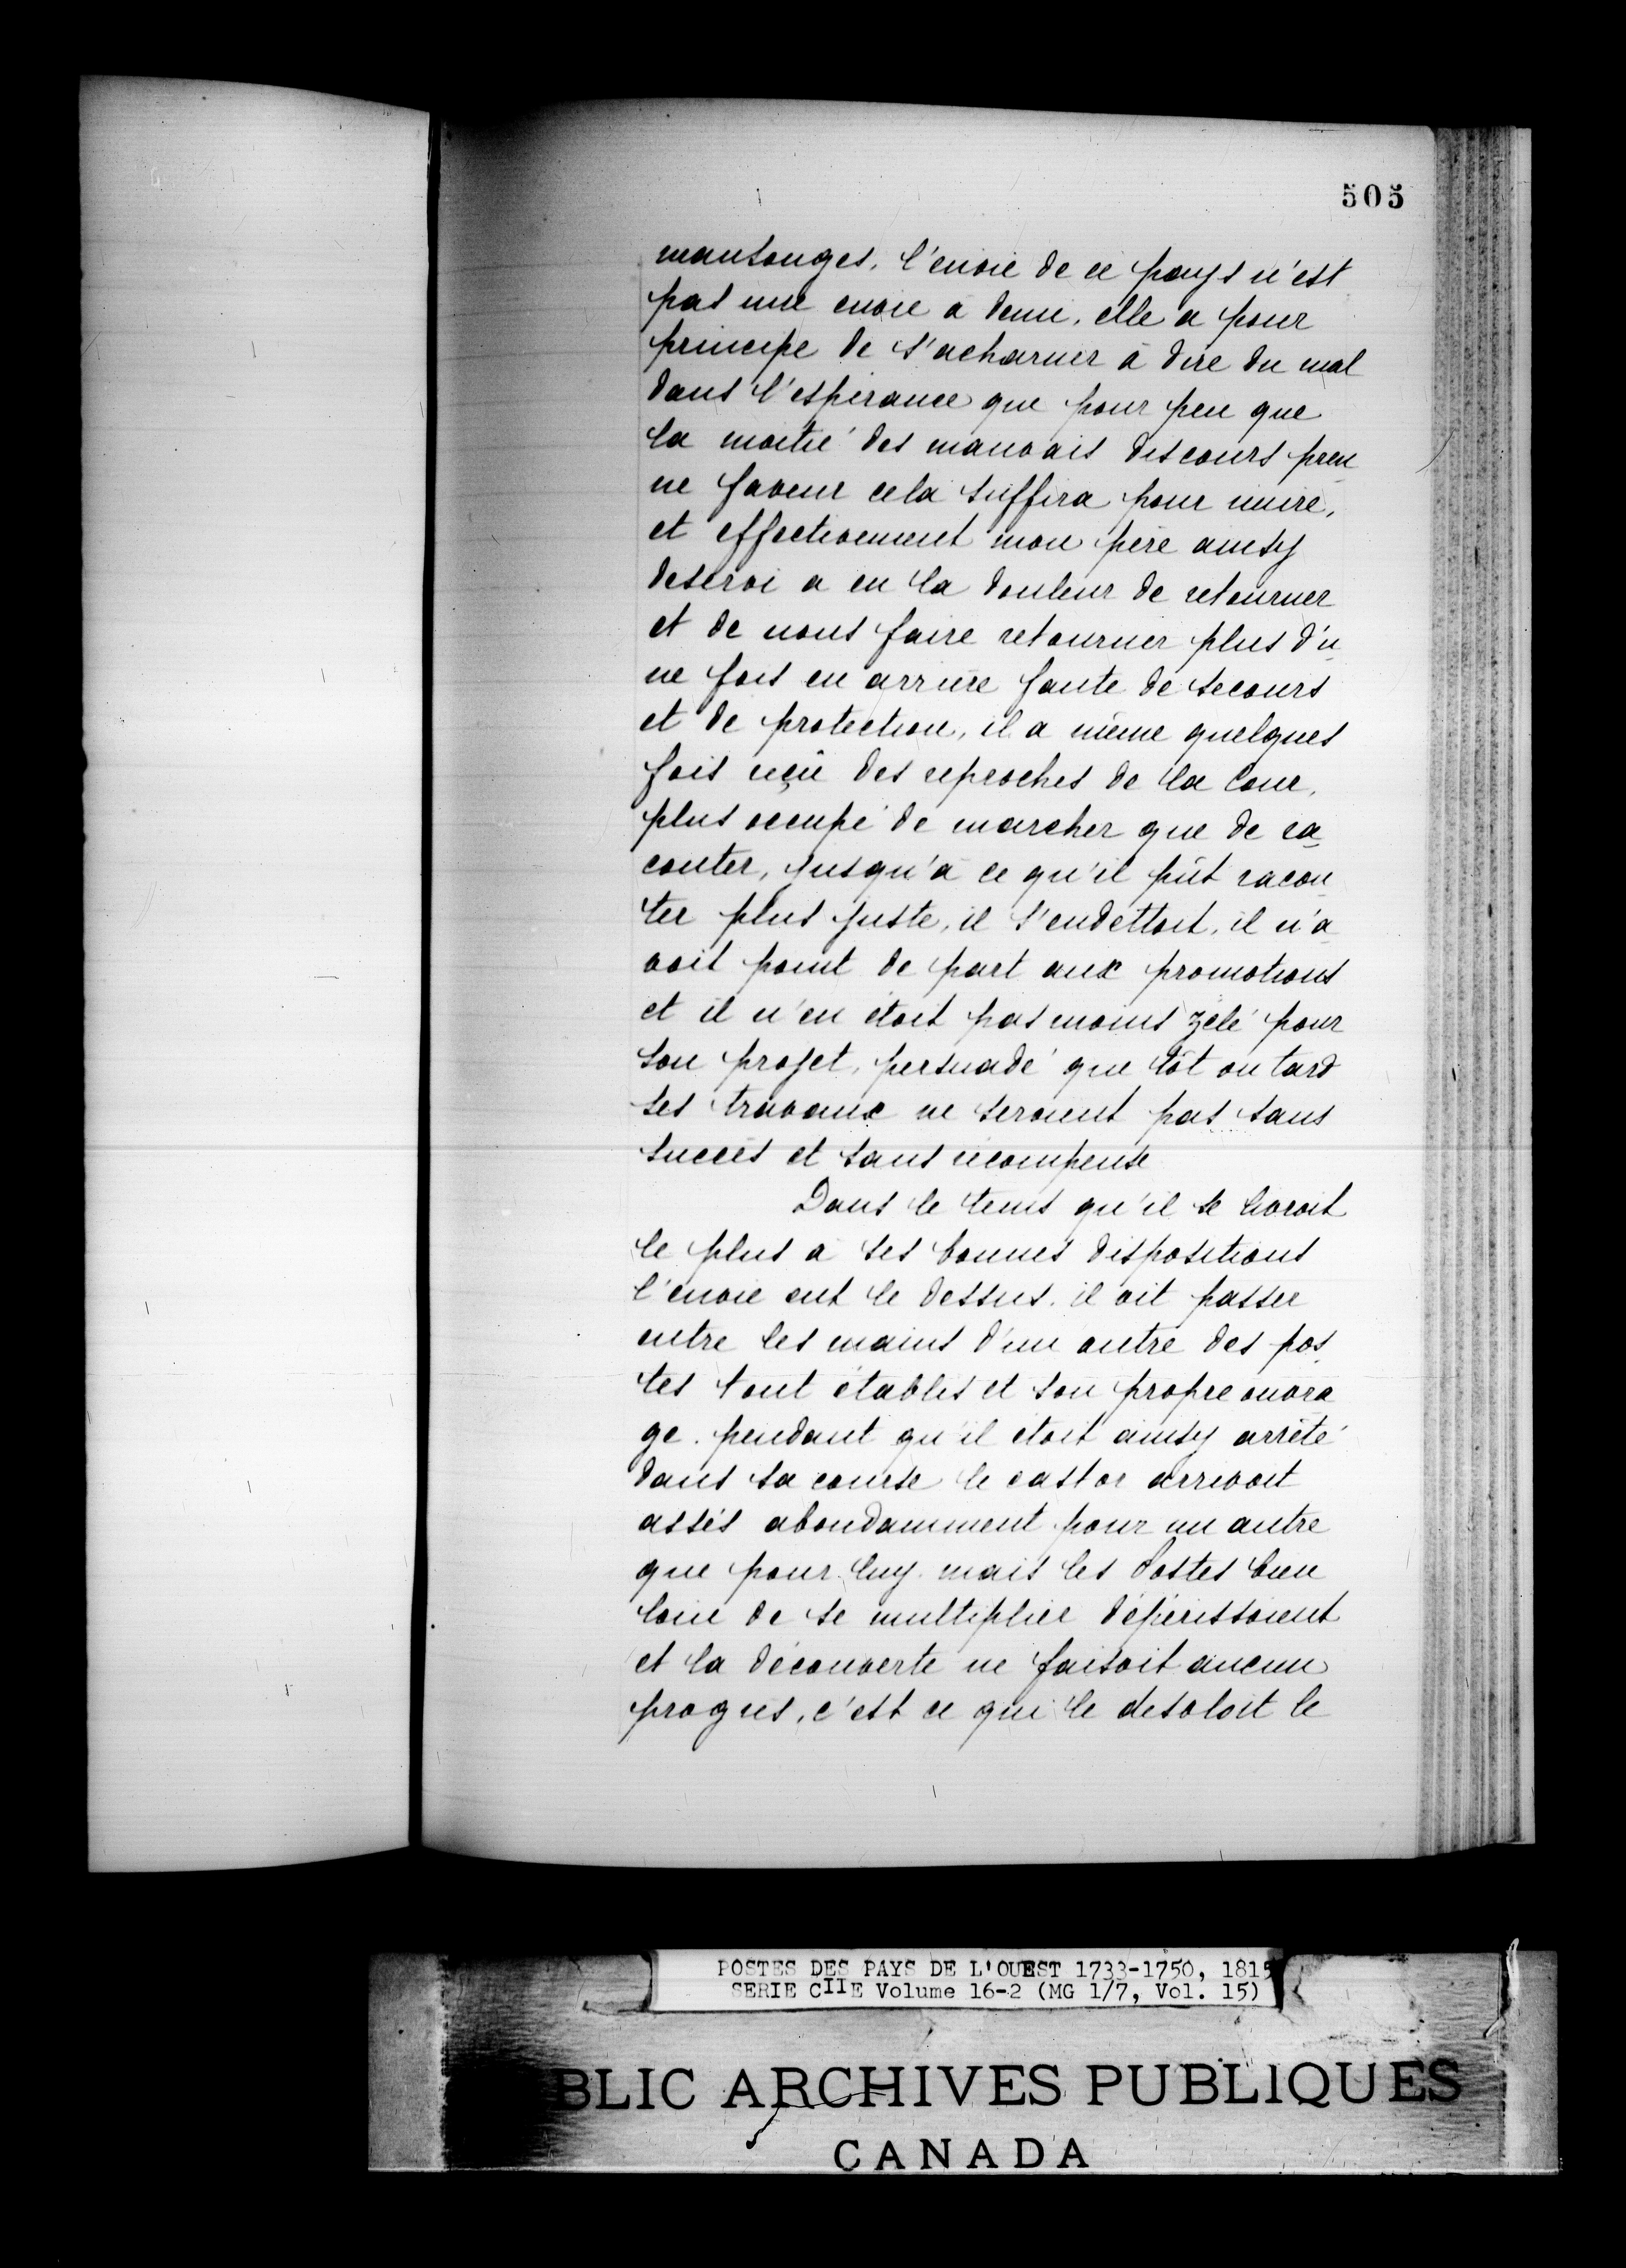 505
mansonges, l'envie de ce pays n'est
pas une envie à demi, elle a pour
principe de s'acharner à dire du mal
dans l'espérance que pour peu que
la moitié des mauvais discours pren
ne faveur cela suffira pour nuire,
et effectivement mon père ainsy
deservi a eu la douleur de retourner
et de nous faire retourner plus d'u
ne fois en arrière faute de secours
et de protection, il a même quelques
fois reçû des reproches de la Cour,
plus occupé de marcher que de ra
conter, jusqu'à ce qu'il pût racon
ter plus juste, il s'endettoit, il n'a
voit point de part aux promotions
et il n'en étoit pas moins zélé pour
son projet, persuadé que tôt ou tard
ses travaux ne seroient pas sans
succès et sans récompense
Dans le tems qu'il se livroit
le plus à ses bonnes dispositions
l'envie eut le dessus. il vit passer
entre les mains d'un autre des pos
tes tout établis et son propre ouvra
ge. pendant qu'il étoit ainsy arrêté
dans sa course le castor arrivoit
assés abondamment pour un autre
que pour luy. mais les Postes bien
loin de se multiplier dépérissoient
et la découverte ne faisoit aucun
progrès, c'est ce qui le desoloit le
POSTES DES PAYS DE L'OUEST 1733-1750, 1815
SERIE CIIE Volume 16-2 (MG 1/7, Vol. 15)
BLIC ARCHIVES PUBLIQUES
CANADA